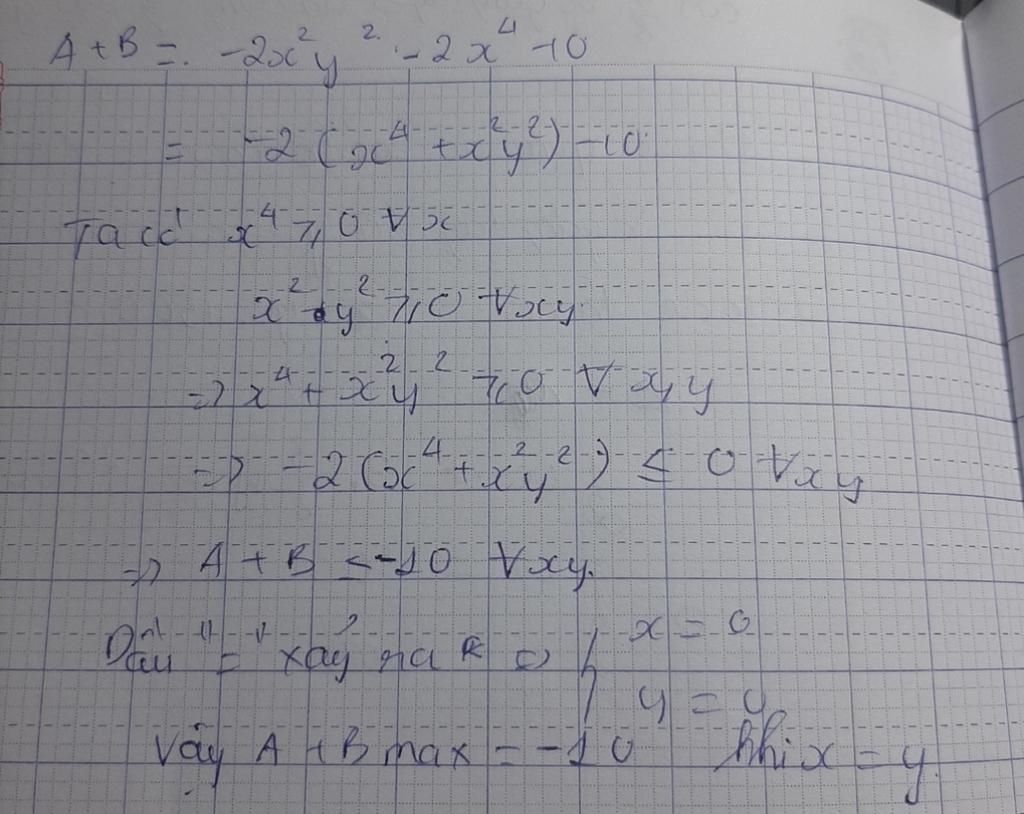 A + B = -2x²y² - 2x⁴ - 10
= -2 (x⁴ + x²y²) - 10
Ta có x⁴ ≥ 0 ∀x
x² y² ≥ 0 ∀xy
=> x⁴ + x²y² ≥ 0 ∀ x, y
=> -2 (x⁴ + x²y²) ≤ 0 ∀xy
=> A + B ≤ -10 ∀xy.
Dấu "=" xảy ra <=> { x = 0
y = y
Vậy A + B max = -10 khi x = y.